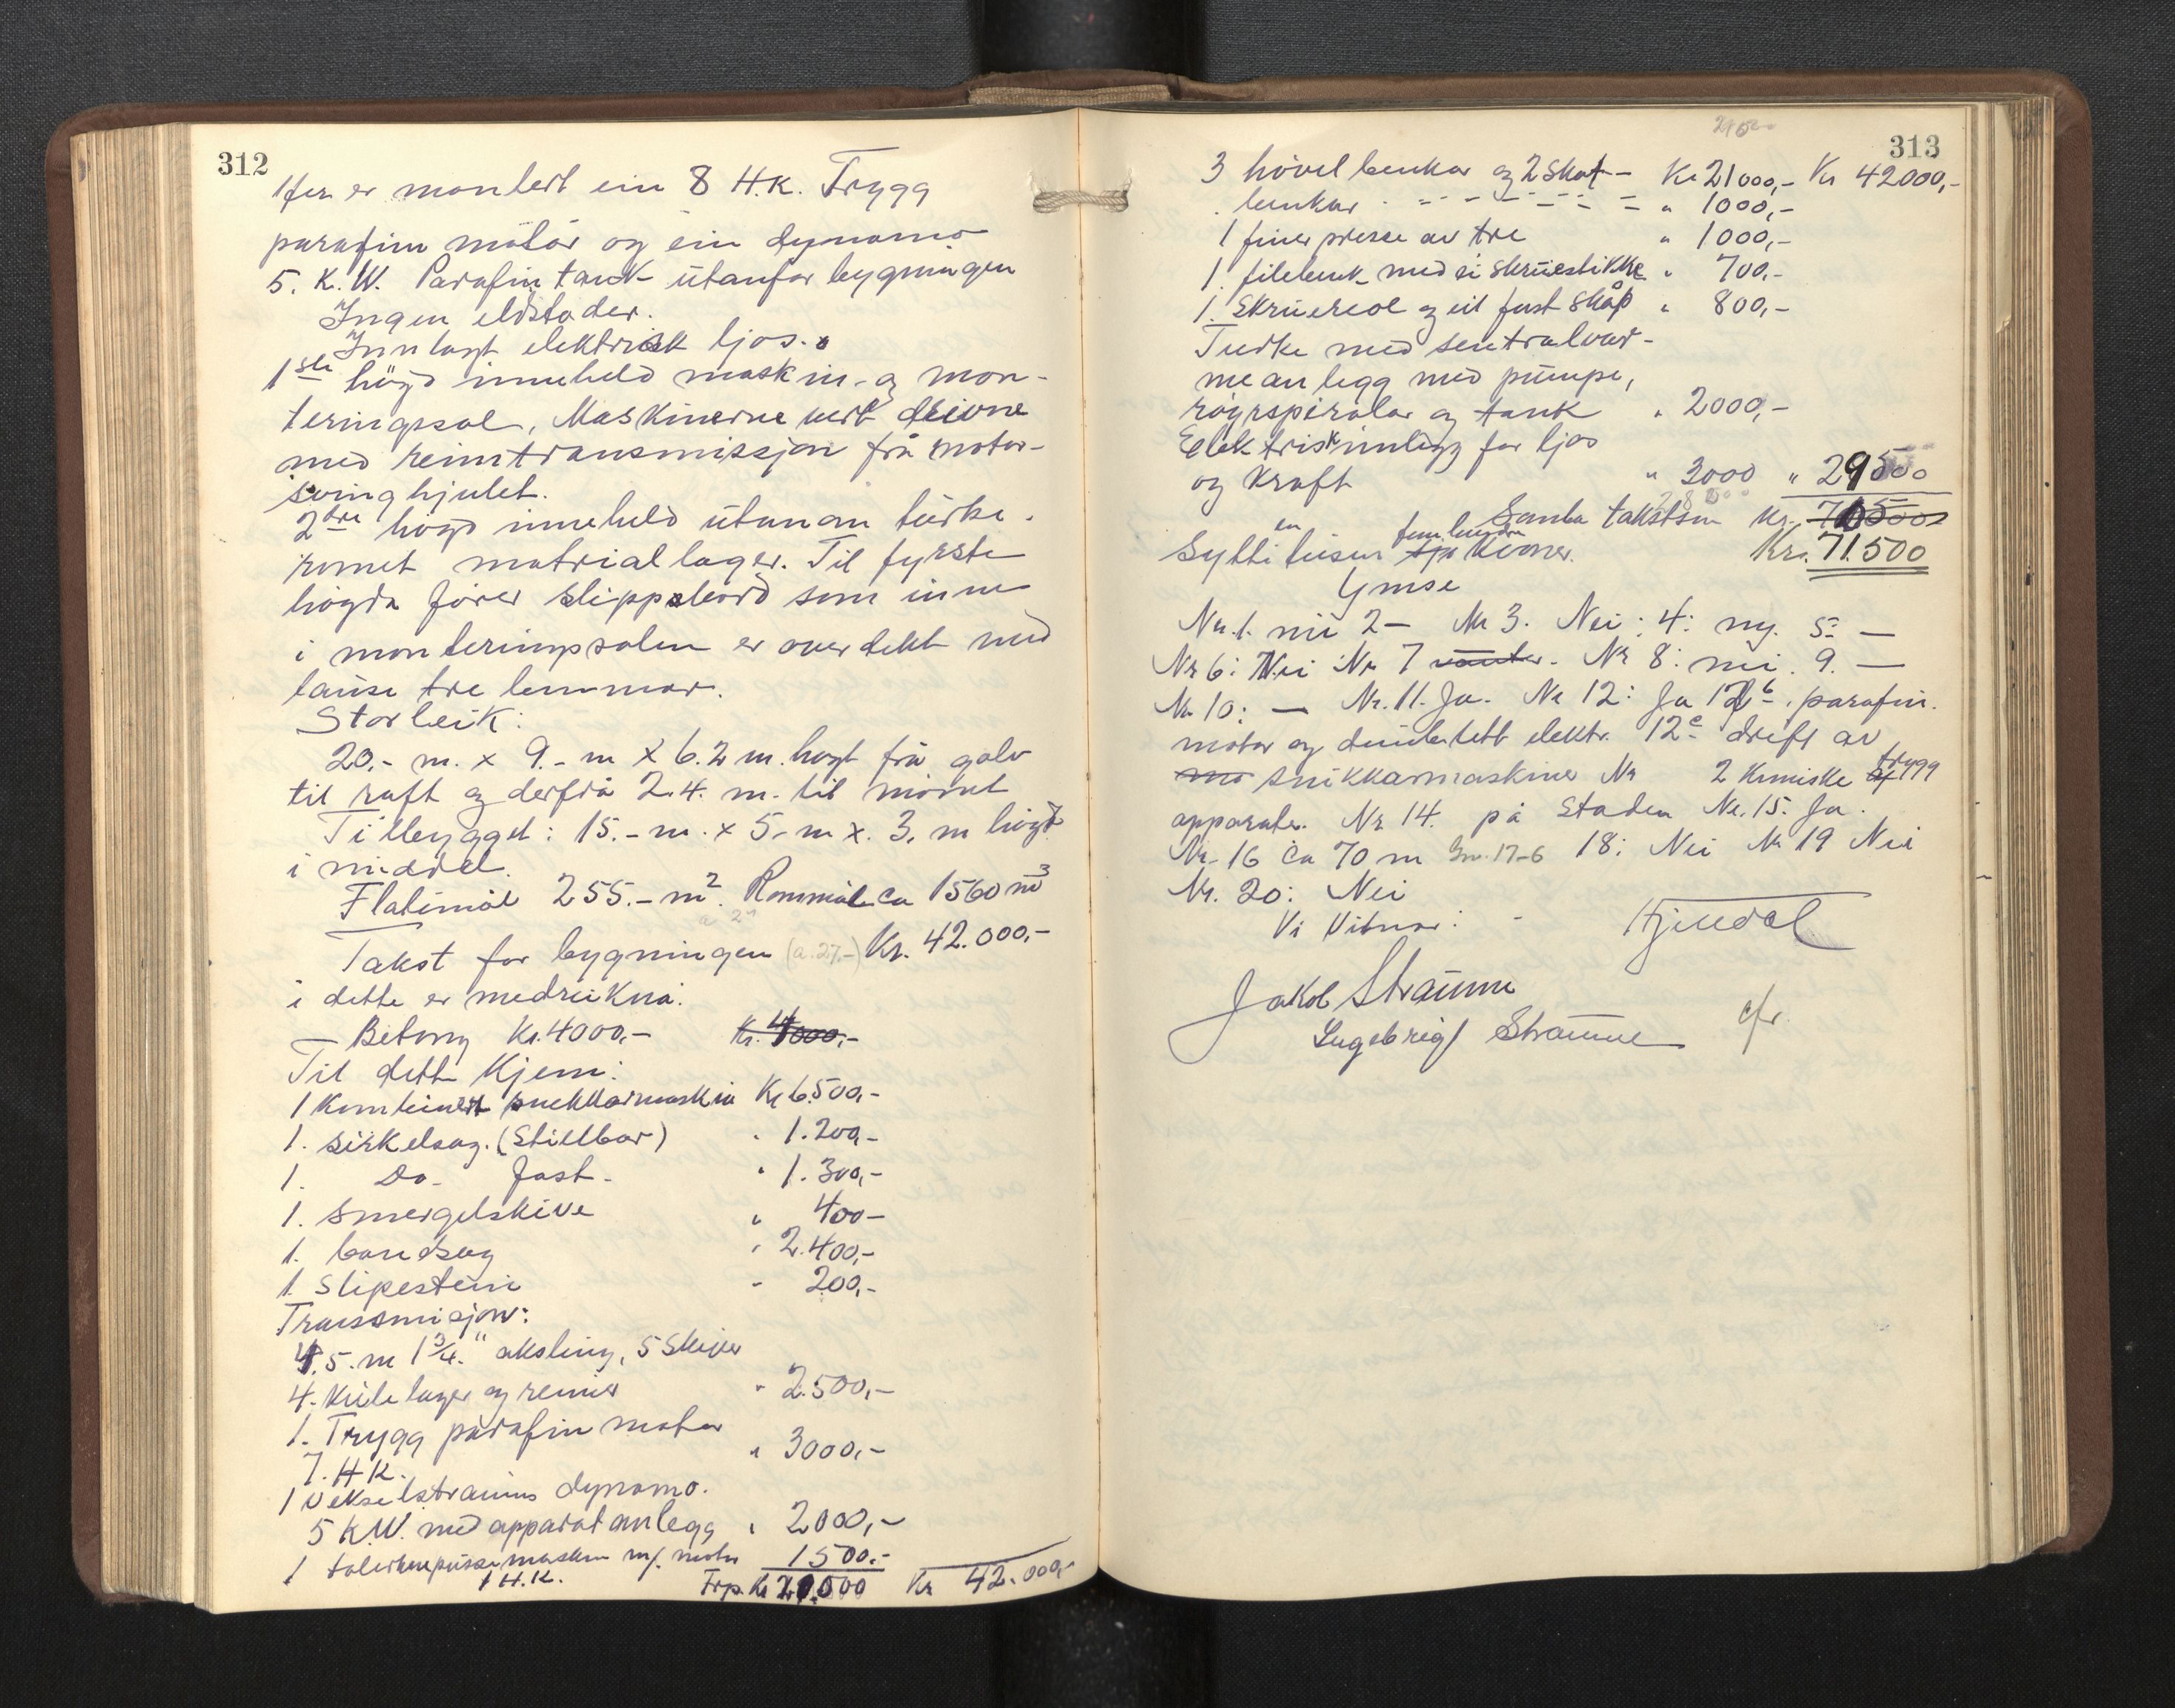 312
Her er montert ein 8 H.K. Trygg
parafin motor og ein dynamo
5. K.W. Parafin tank utanfor bygningen
Ingen eldstader.
Innlagt elektrisk ljos.
1ste högd inneheld maskin- og mon-
teringssal, Maskinerne vert drivne
med reimtransmissjon frå motor-
svinghjulet.
2dre högd inneheld utanom turke-
romet matriallager. Til fyrste
högda förer slippsbord som inne
i monteringssalen er overdekt med
lause tre lemmar.
Storleik:
20,- m. x 9.- m x 6.2 m. hogt frå golv
til raft og derfrå 2.4. m. til mönet
Tilbygget: 15.- m. x 5,- m x. 3. m högt
i middel.
Flatimål 255.- m². Rommål ca 1560 m³
Takst for bygningen (a. 27,-) Kr. 42.000,-
i dette er medreikna:
Betong Kr. 4000,- Kr. 4000,-
Til dette Kjem:
1 Kombinert snekkarmaskin Kr 6.500,-
1. sirkelsag. (Stillbar) " 1.200,-
1. Do. fast. " 1.300,-
1. Smergelskive " 400-
1. bandsag " 2.400,-
1 Slipestein - 200,-
Transmisjon:
4.5. m 1 3/4" aksling, 5 Skiver
4. kule lager og reimer " 2.500,-
1. Trygg parafin motor
7. H.K. " 3000,-
1 Vekselstraums dynamo.
5 K.W. med apparatanlegg " 2000,-
1 tallerkenpussemaskin m/. motor 1500.-
1 H.K. Trp. Kr 21.000 Kr 42.000,-
313
3 hövelbenkar og 2 skot- Kr 21000,- Kr 42000,-
benkar " 1000,-
1 finer presse av tre " 1000,-
1. filebenk med ei skruestikke " 700,-
1. Skruereol og eit fast Skåp " 800,-
Turke med sentralvar-
meanlegg med pumpe,
röyrspiralar og tank " 2000,-
Elektrisk innlegg for ljos
og Kraft " 3000 " 29500
Samla takstsum Kr. 70500
en fem hundre
Sytti tusen sju Kroner. Kr. 71.500
Ymse
Nr. 1. nei 2- Nr 3. Nei: 4: ny. 5: -
Nr 6: Nei Nr 7 vanter. Nr 8: nei. 9. -
Nr 10: - Nr. 11. Ja. Nr 12: Ja 12b. parafin.
motor og elektr. 12c drift av
snikkarmaskiner Nr 2 Kemiske trygg
apparater. Nr 14. på Staden Nr. 15. Ja.
Nr. 16 ca 70 m Gnr. 17-6 18: Nei Nr 19 Nei
Nr. 20: Nei
Vi Vitnar: - Hjelldal
Jakob Straume
Ingebrigt Straume cfr.